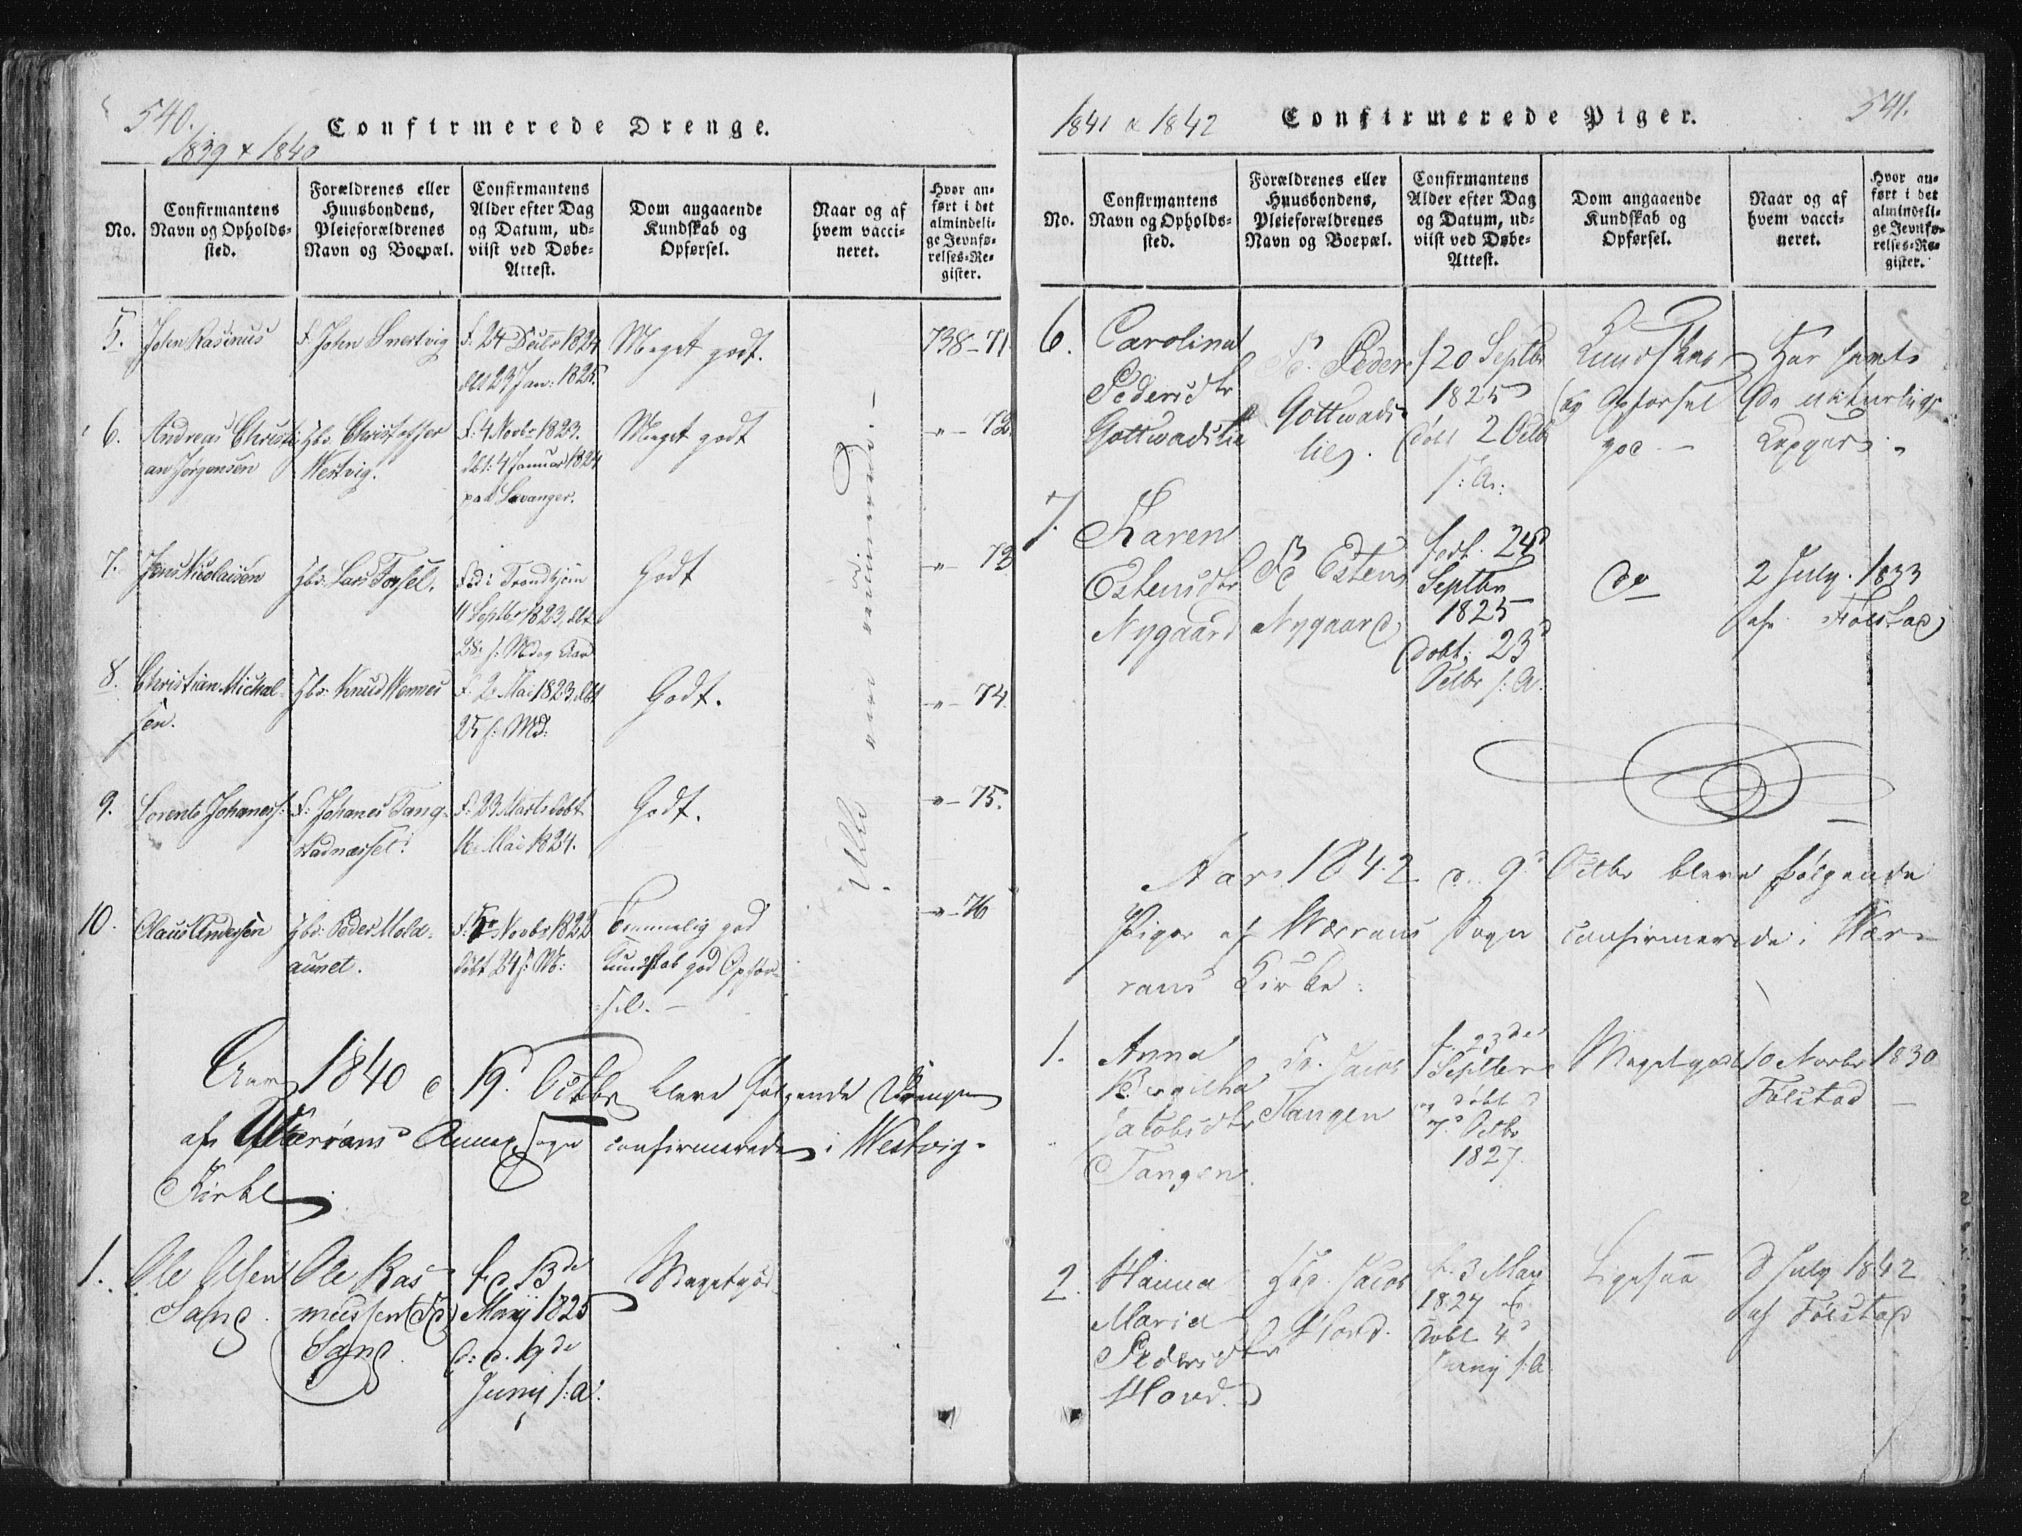 540.
Confirmerede Drenge.
1839 & 1840
No.
Confirmantens
Navn og Opholds-
sted.
Forældrenes eller
Huusbondens,
Pleieforældrenes
Navn og Boepæl.
Confirmantens
Alder efter Dag
og Datum, ud-
viist ved Døbe-
Attest.
Dom angaaende
Kundskab og
Opførsel.
Naar og af
hvem vacci-
neret.
Hvor an-
ført i det
almindeli-
ge Jevnfø-
relses-Re-
gister.
5.
John Rasmus
F. John
f. 24 1824
23 Jan: 1825.
Meget godt.
738-71.
6.
Andreas Christi
an Jørgensen
Hbd: Christopher
Westvig.
f. 4 Novbr 1823.
4 Januar 1824
paa Levanger.
Meget godt
"-72.
7.
Jens Nicolaisen
Hbd: Lars
Fød i Trondhjem
11 Septbr 1823, dbt
28 s: Md og Aar
Godt
"-73
8.
Christian Michal-
sen.
Hbd: Knud
f. 2 Mai 1823, dbt
25 s: Md:
Godt.
"-74.
9.
Lorents Johaness:
F: Johanes Tang-
f. 23 Marts døbt
16 Mai 1824.
Godt.
"-75.
10.
Claus Andersen
Hbd: Peder Mold-
aunet.
f: Novbr 1822
døbt 24 s: M:
Temmelig god
Kundskab god Opfør-
sel. -
"-76
Alle ere
Aar 1840 d 19d Octbr bleve følgende Drenge
af Annex Sogn confirmerede i Westvig-
Kirke
1.
Ole Olsen
Ole Ras
mussen
f. d. 13de
Maij 1825
d: d. 19de
Junij s: A:
Meget god
1841 & 1842
Confirmerede Piger.
541.
No.
Confirmantens
Navn og Opholds-
sted.
Forældrenes eller
Huusbondens,
Pleieforældrenes
Navn og Boepæl.
Confirmantens
Alder efter Dag
og Datum, ud-
viist ved Døbe-
Attest.
Dom angaaende
Kundskab og
Opførsel.
Naar og af
hvem vacci-
neret.
Hvor an-
ført i det
almindeli-
ge Jevnfø-
relses-Re-
gister.
6.
Carolina
Pedersdtr
Gottwadslie
F. Peder
Gottwads-
lie.
f 20 Septbr
1825
døbt 2 Octb
s: A:
Kundskab
og Opførsel
god -
Har havt
de naturlige
Kopper.
7.
Karen
Estensdtr
Nygaard
F Esten
Nygaard
født. 24d
Septbr
1825
døbt. 23d
Octbr s: A.
do
2 July. 1833
af Følstad
Aar 1842 d. 9d Octbr bleve følgende
Piger af Wærrans Sogn confirmerede i Wær-
rans Kirke.
1.
Anna
Bergitha
Jacobsdtr
Tangen.
F. Jacob
Tangen
f. 23de
Septbr
og døbt
7d Octbr
1827.
Meget godt
10 Novbr 1830
Følstad -
2.
Hanna
Maria
Pedersdtr
Hovd.
Hbd. Jacob
Hovd.
f. 3 Mai
1827 &
døbt 4d
Junij s: A
Ligesaa
8 July 1842
af Følstad